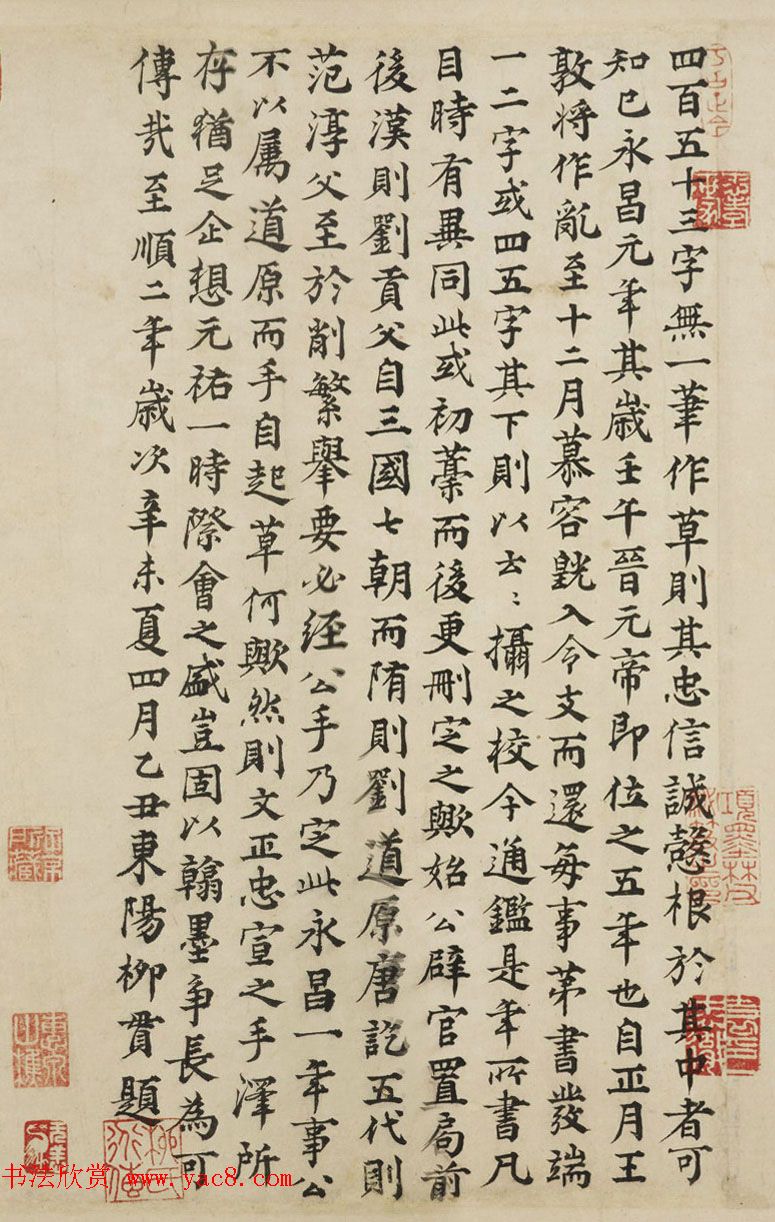 四百五十三字無一筆作草則其忠信誠慤根於其中者可
知已永昌元年其歲壬午晉元帝即位之五年也自正月王
敦將作亂至十二月慕容皝入令支而還每事第書發端
一二字或四五字其下則以云〻攝之校今通鑑是年所書凡
目時有異同此或初藁而後更刪定之歟始公辟官置局前
後漢則劉貢父自三國七朝而隋則劉道原唐訖五代則
范淳父至於削繁舉要必經公手乃定此永昌一年事公
不以屬道原而手自起草何歟然則文正忠宣之手澤所
存猶足企想元祐一時際會之盛豈固以翰墨爭長為可
傳哉至順二年歲次辛未夏四月乙丑東陽柳貫題
书法欣赏 www.yac8.com